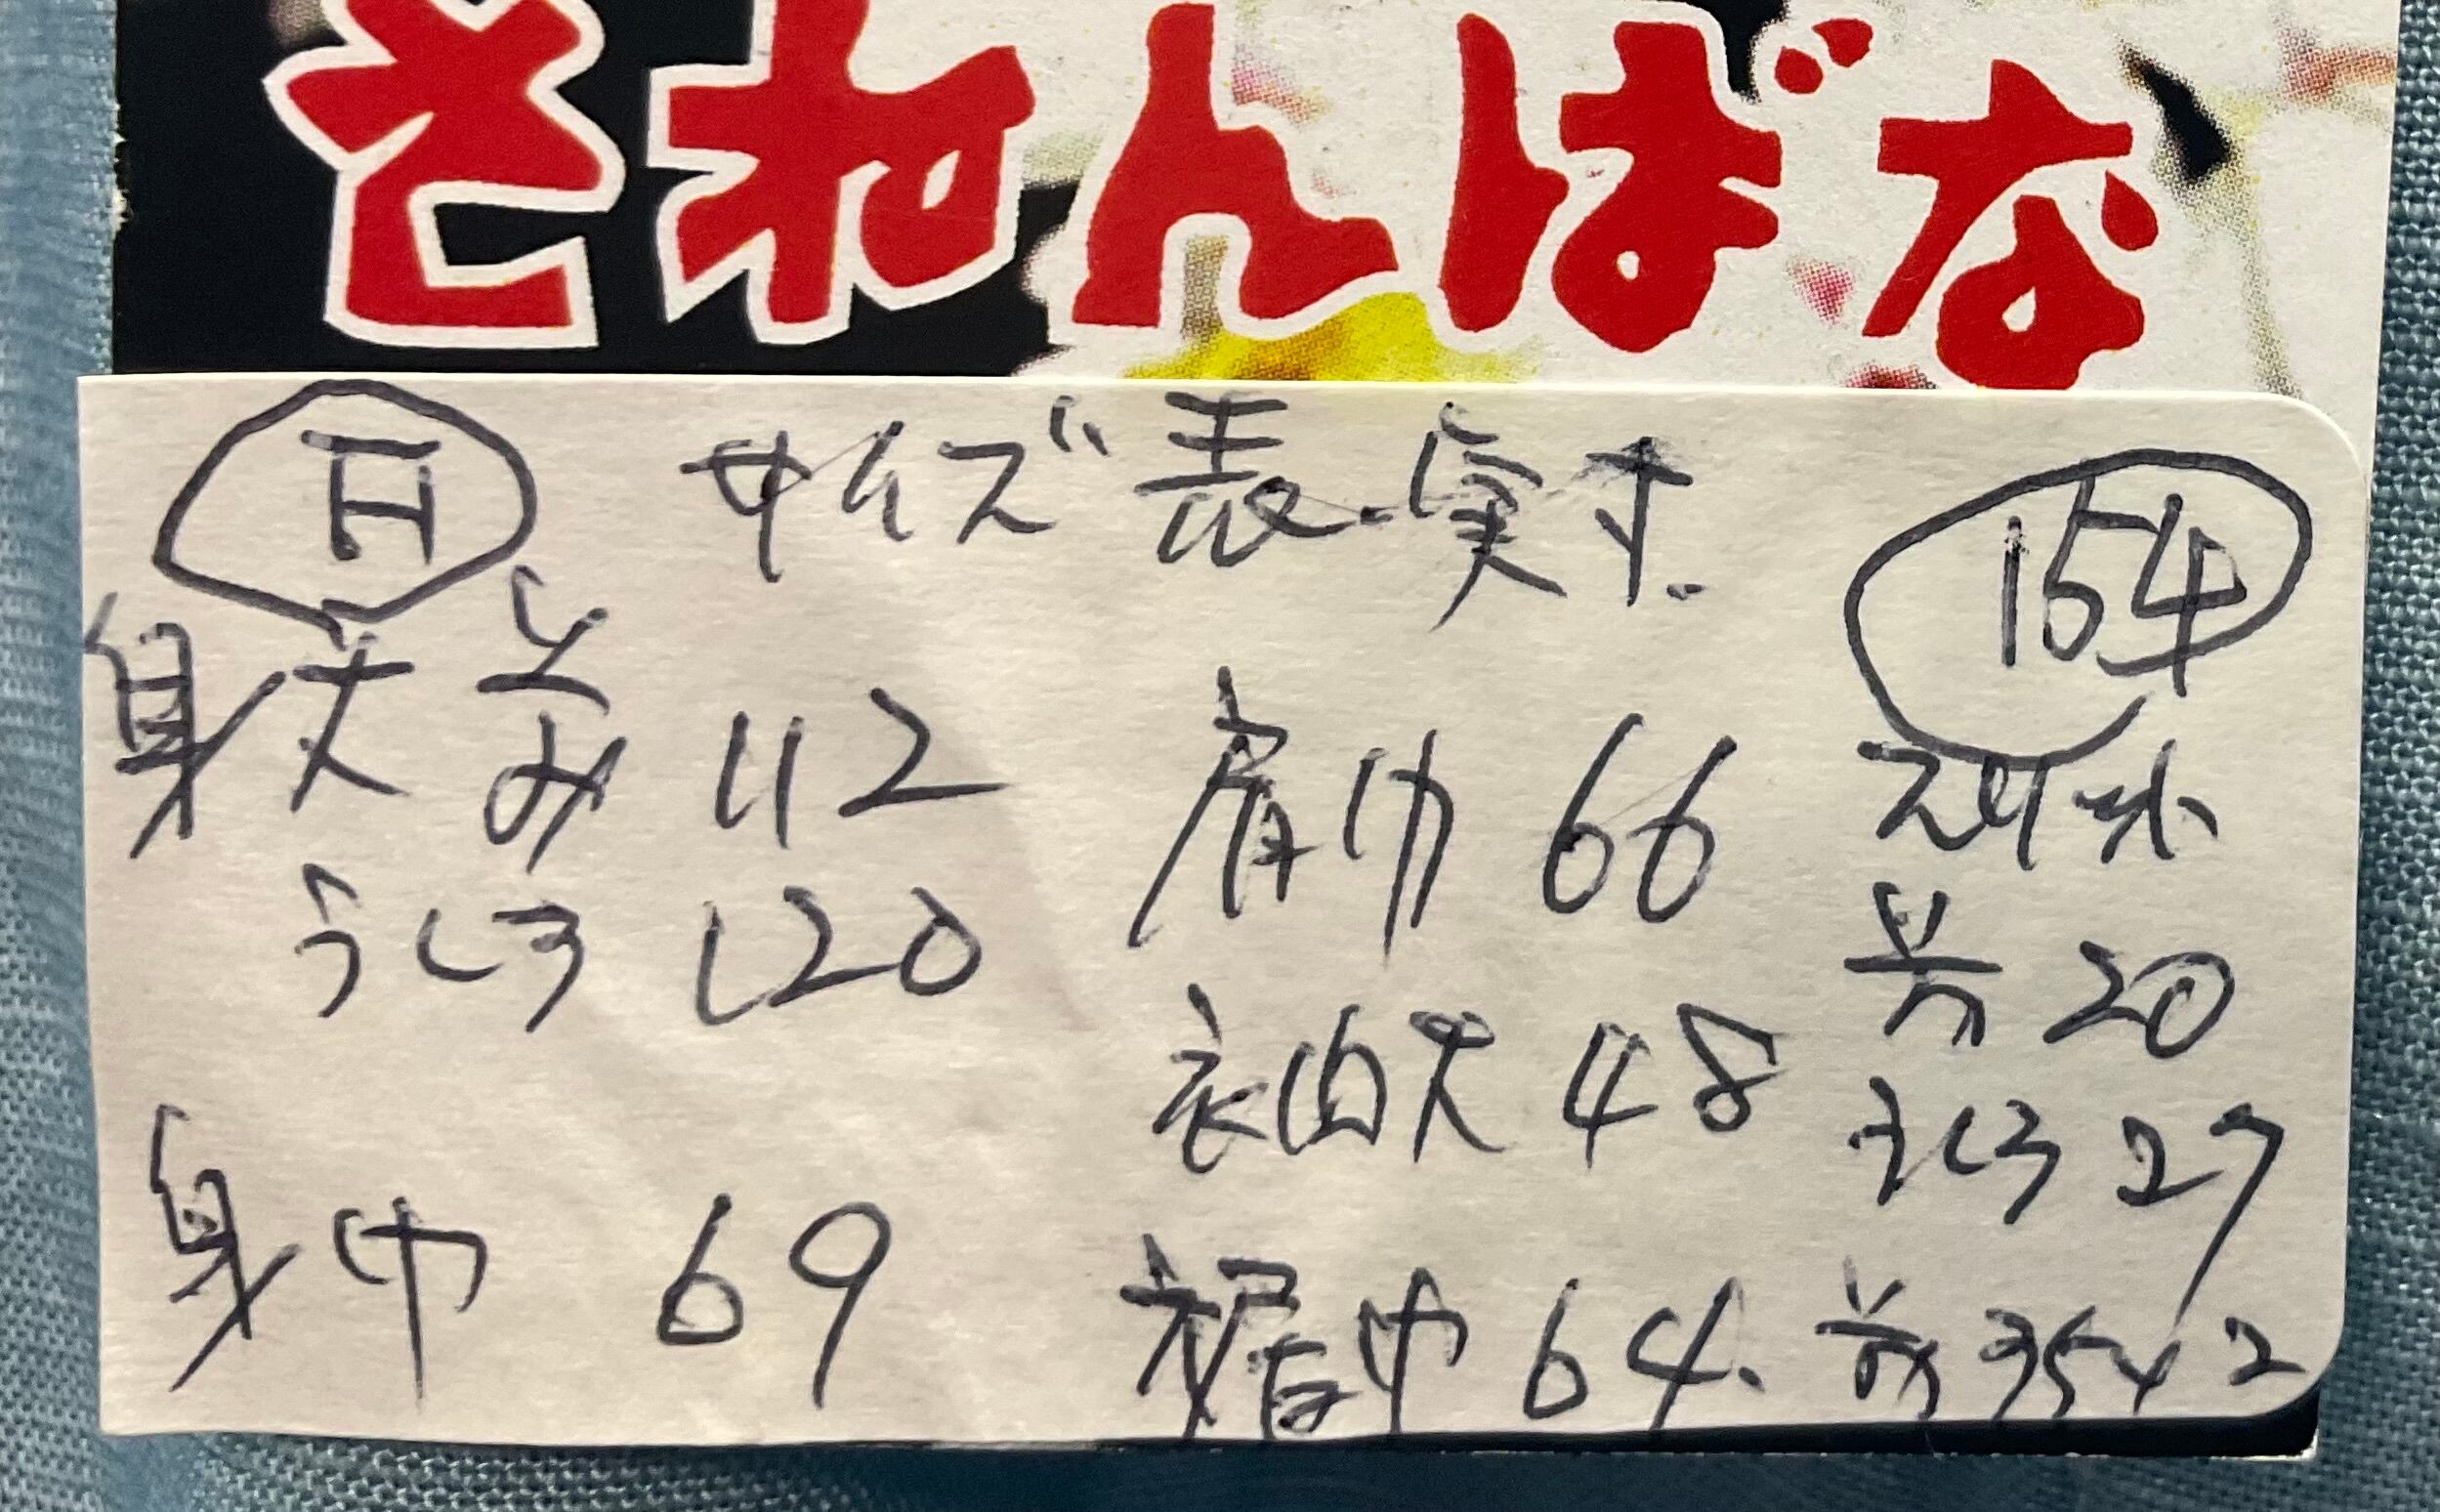 さねんばな
日 サイズ表.実寸. 154
身丈 上
み 112
うしろ 120
身巾 69
肩巾 66
衣由丈 48
裾巾 64.
スリット
前 20
うしろ 27
前 35×2